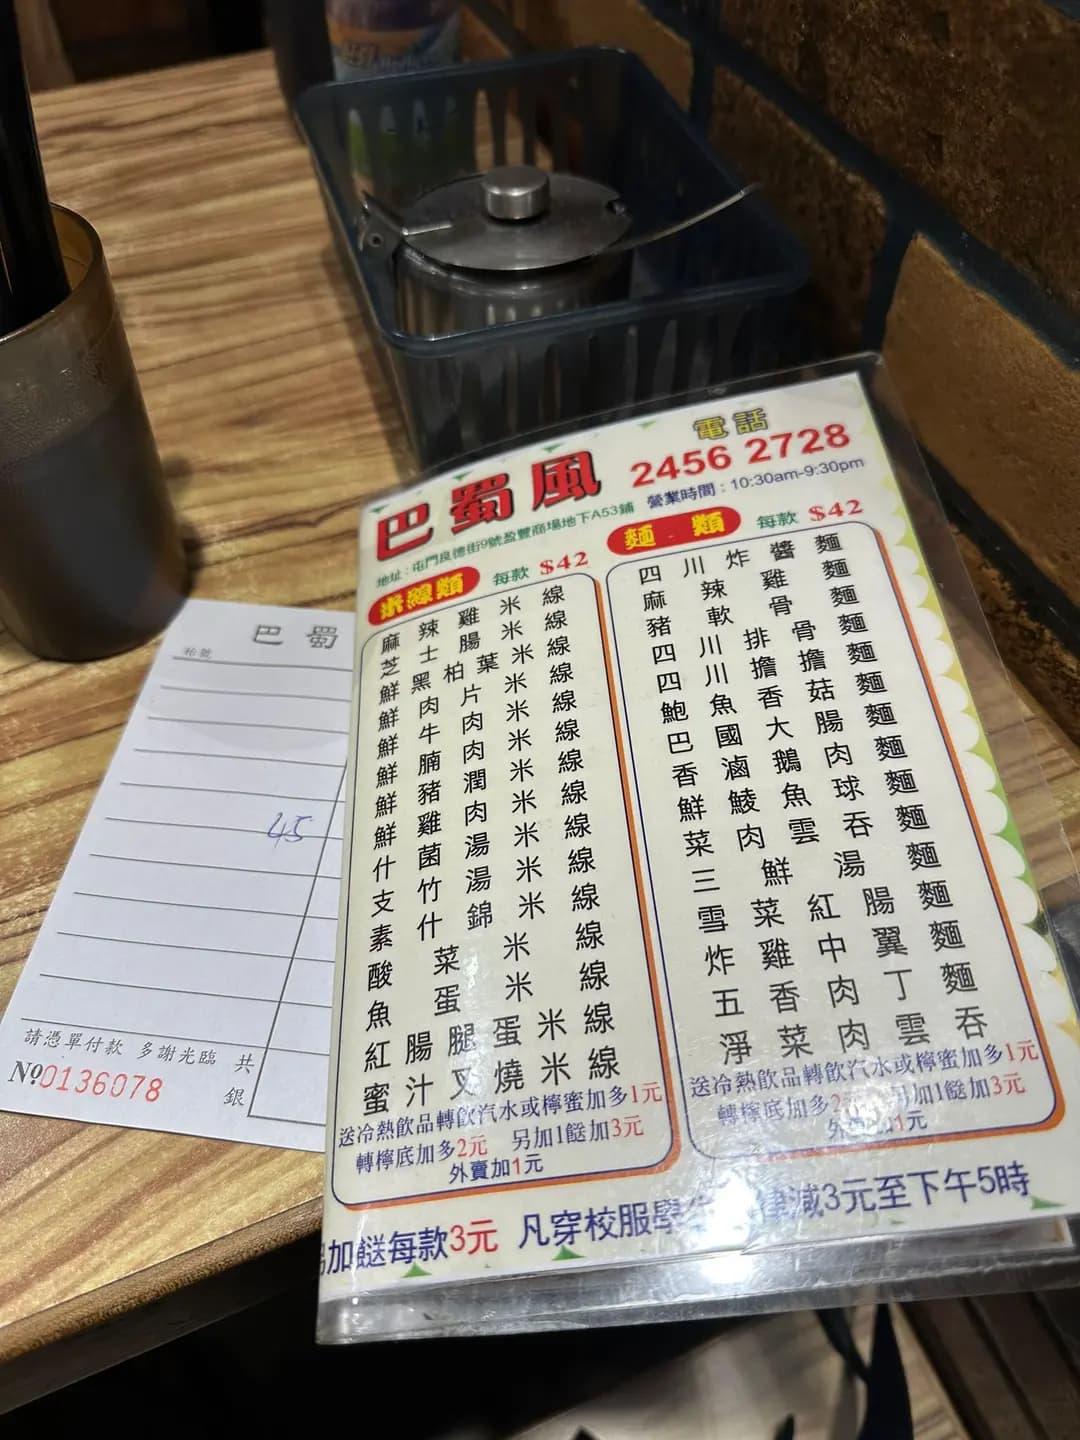 電話
巴蜀風 2456 2728
地址：屯門良德街9號盈豐商場地下A53鋪
營業時間：10:30am-9:30pm
米線類 每款 $42
麻辣雞米線
芝士腸米線
鮮黑柏葉米線
鮮肉片米線
鮮牛肉米線
鮮腩肉米線
鮮豬潤米線
鮮雞肉米線
什菌湯米線
支竹湯米線
素什錦米線
酸菜米線
魚蛋米線
紅腸腿蛋米線
蜜汁叉燒米線
送冷熱飲品轉飲汽水或檸蜜加多1元
轉檸底加多2元 另加1餸加3元
外賣加1元
麵類 每款 $42
四川炸醬麵
麻辣雞麵
豬軟骨麵
四川排骨麵
四川擔擔麵
鮑魚香菇麵
巴國大腸麵
香滷鵝肉麵
鮮鯪魚球麵
菜肉雲吞麵
三鮮湯麵
雪菜紅腸麵
炸雞中翼麵
五香肉丁麵
淨菜肉雲吞
送冷熱飲品轉飲汽水或檸蜜加多1元
轉檸底加多2元 另加1餸加3元
外賣加1元
加餸每款3元 凡穿校服學 減3元至下午5時
巴蜀
45
請憑單付款 多謝光臨
共
銀
Nº0136078